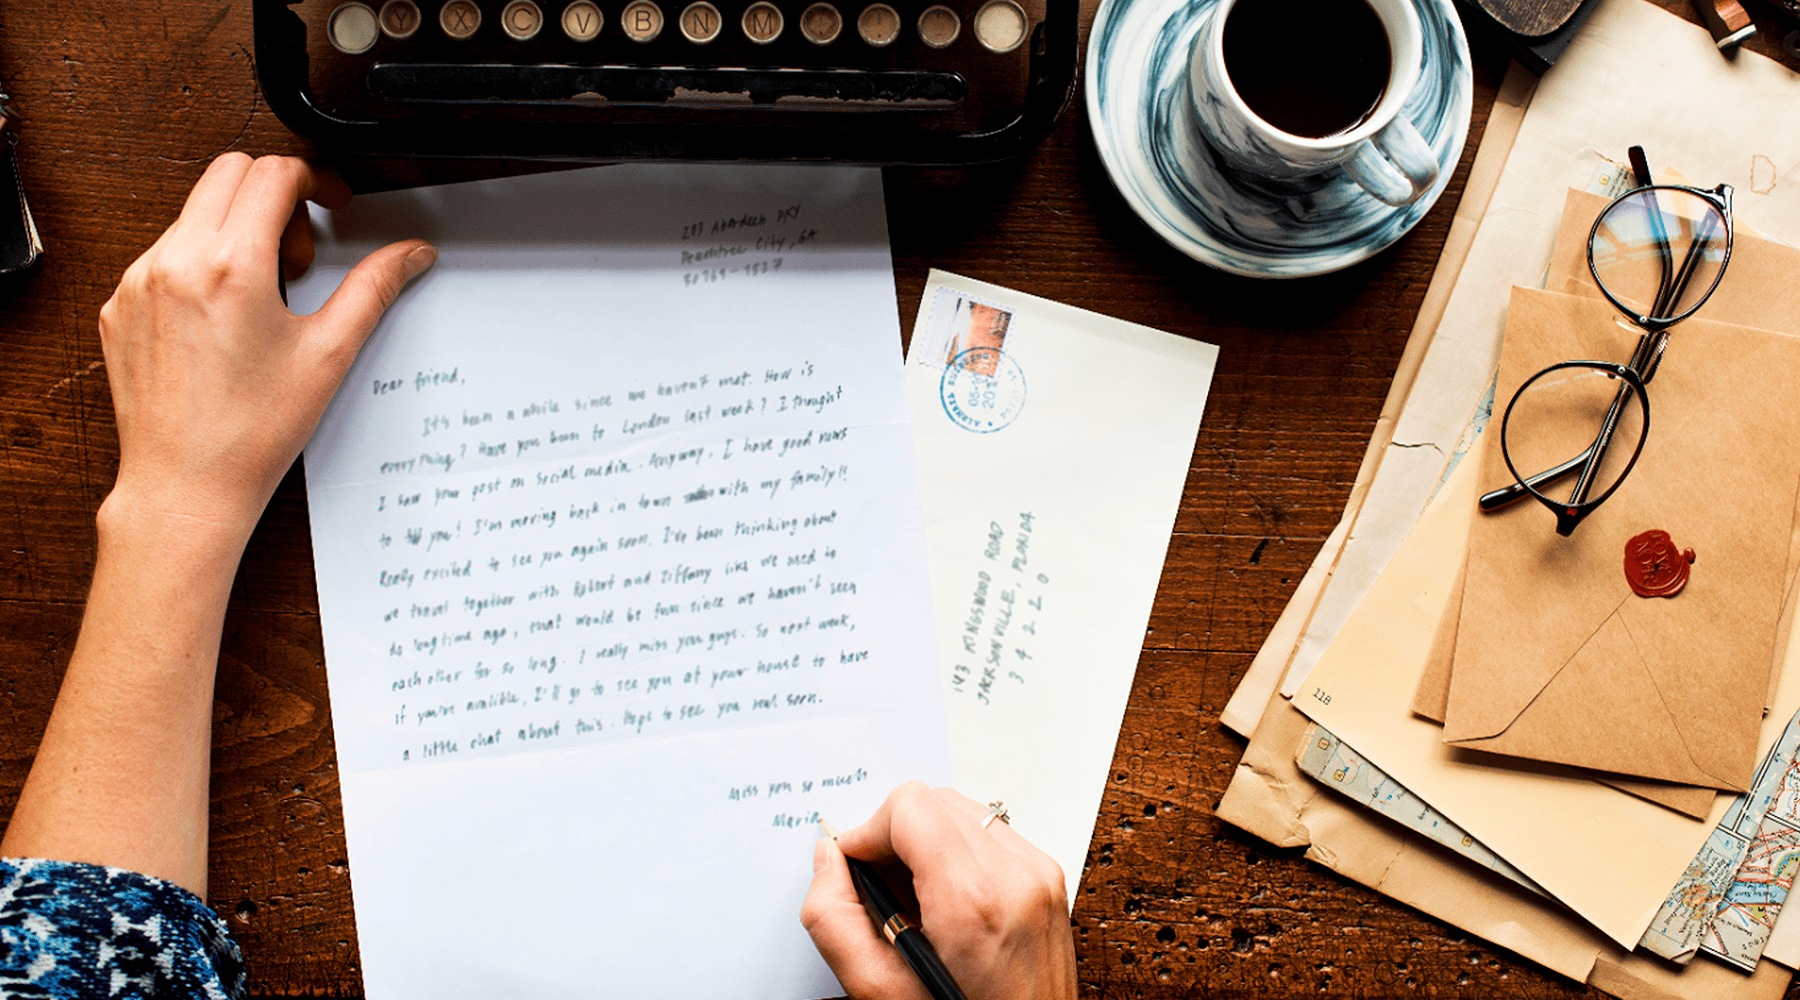 Y X C V B N M
203 Aberdeen PKY
Peachtree City, GA
30269-1527
Dear friend,
It's been a while since we haven't met. How is
everything? Have you been to London last week? I thought
I saw your post on social media. Anyway, I have good news
to you! I'm moving back in town with my family!!
Really excited to see you again soon. I've been thinking about
we travel together with Robert and Tiffany like we used to
do long time ago, that would be fun since we haven't seen
each other for so long. I really miss you guys. So next week,
if you're avalible, I'll go to see you at your house to have
a little chat about this. Hope to see you real soon.
Miss you so much
Maria
143 KINGSWOOD ROAD
JACKSONVILLE, FLORIDA
3 4 2 2 0
118